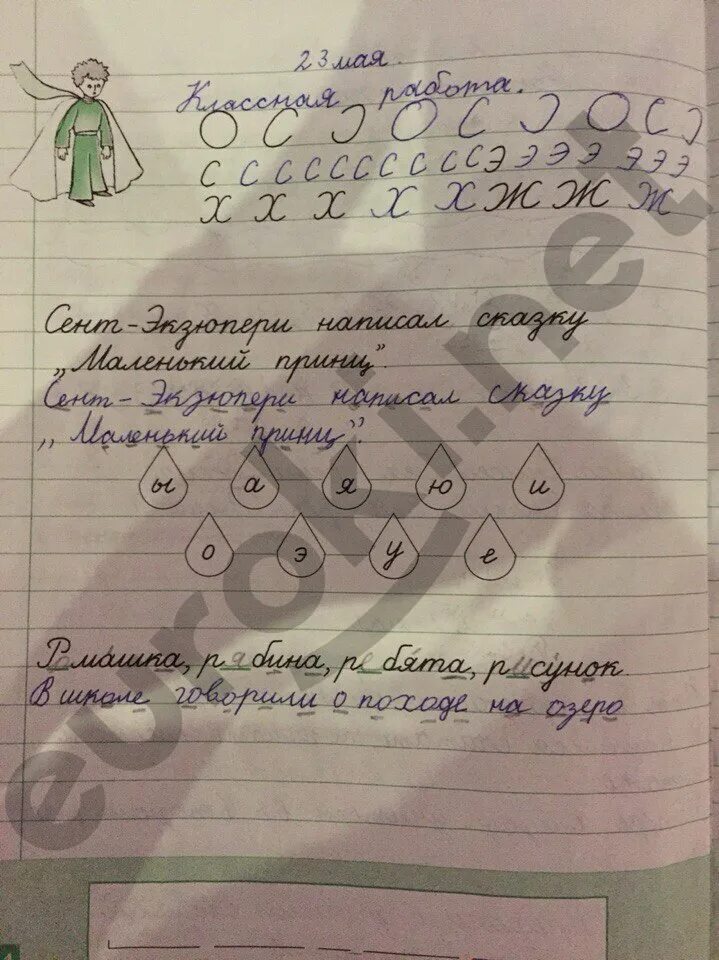 23 мая.
Классная работа.
О С Ɔ О С Ɔ О С Ɔ
С С С С С С С С С С Э Э Э Э Э Э Э Э
Х Х Х Х Х Ж Ж Ж
Сент-Экзюпери написал сказку
„Маленький принц".
Сент-Экзюпери написал сказку
„Маленький принц".
ы а я ю и
о э у е
Ромашка, рябина, ребята, рисунок.
В школе говорили о походе на озеро
euroki.net